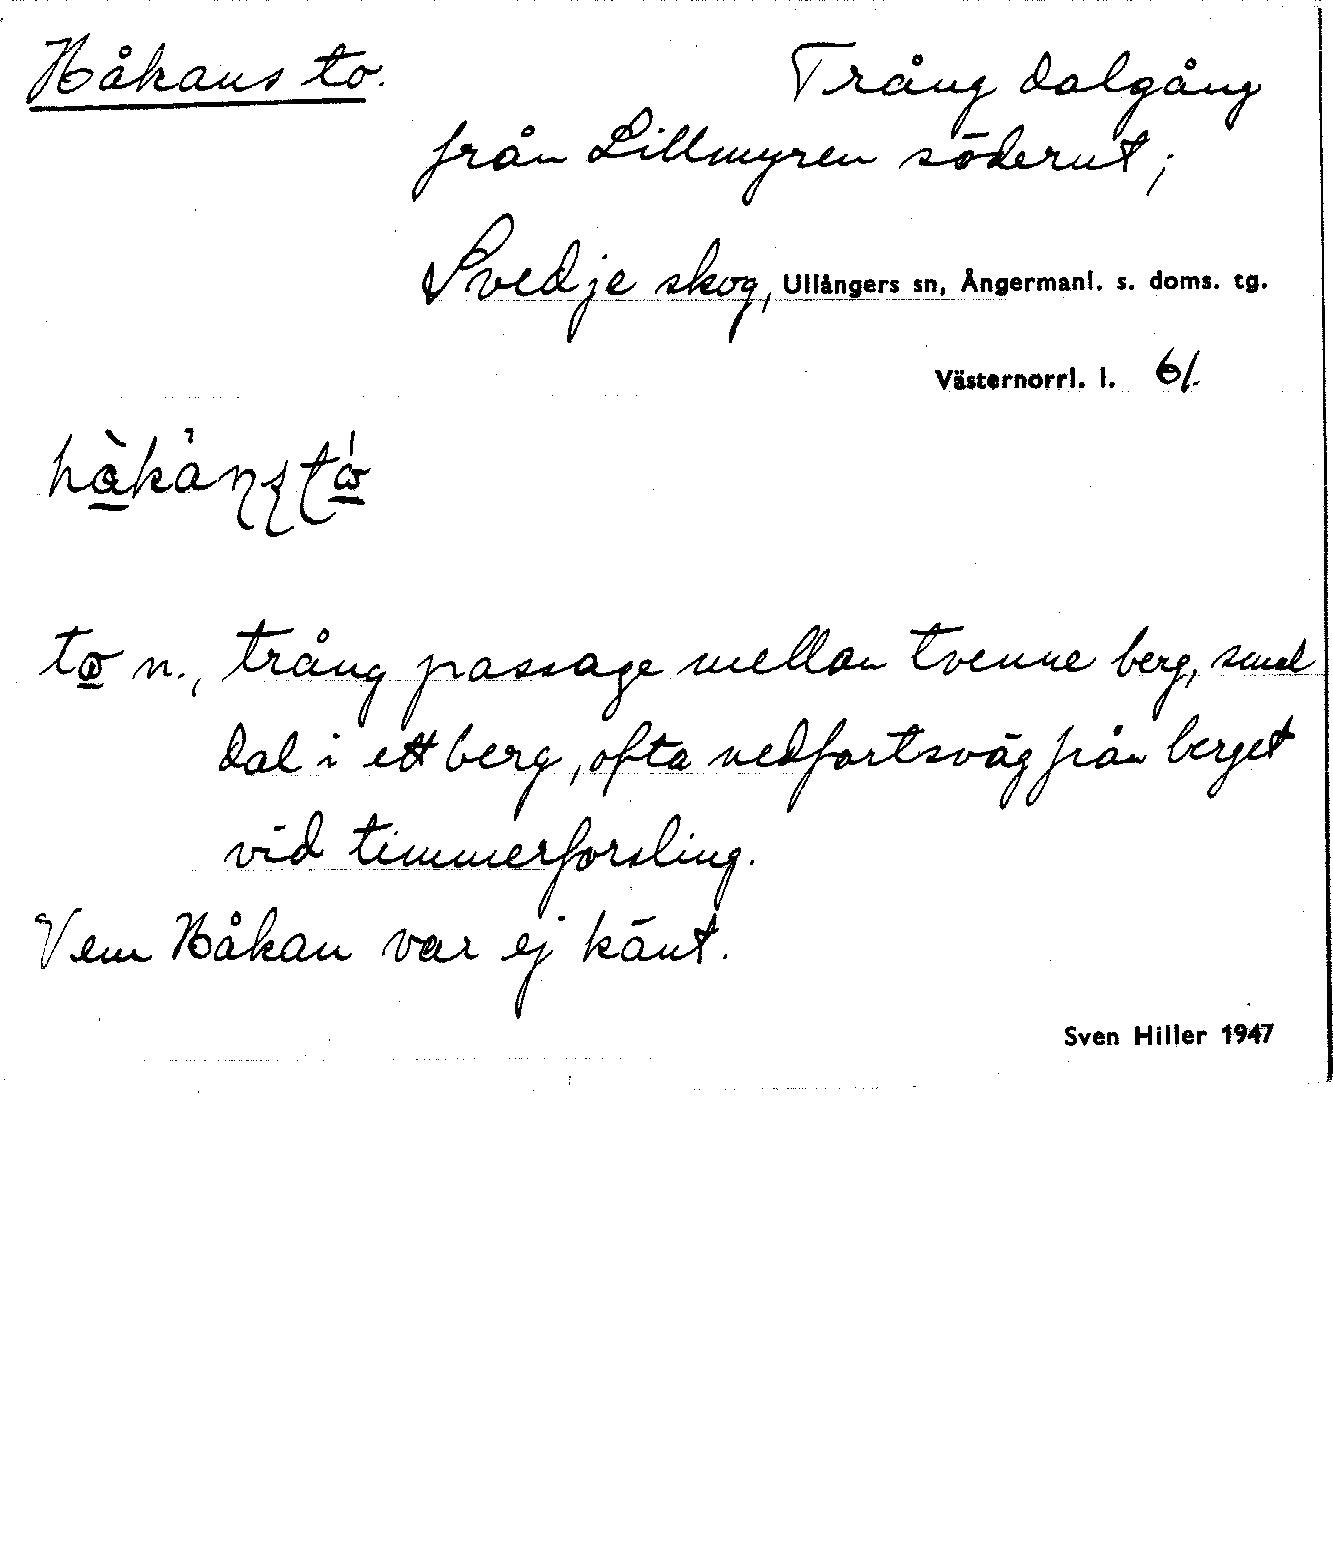 Håkans to. Trång dalgång
från Lillmyren söderut;
Svedje skog, Ullångers sn, Ångermanl. s. doms. tg.
Västernorrl. l. 61.
to n., trång passage mellan tvenne berg, smal
dal i ett berg, ofta nedfartsväg från berget
vid timmerforsling.
Vem Håkan var ej känt.
Sven Hiller 1947